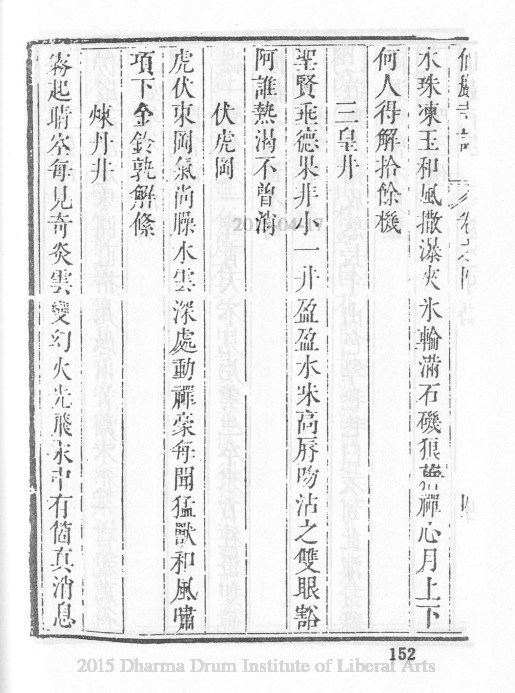 仙巖寺志 卷之四
水珠凍玉和風撒瀑夾氷輪滿石磯狼藉禪心月上下
何人得解拾餘機
三皇井
聖賢垂德果非小一井盈盈水味高唇吻沾之雙眼豁
阿誰熱渴不曾消
伏虎岡
虎伏東岡氣尚臊水雲深處動禪豪每聞猛獸和風嘯
項下金鈴孰解絛
煉丹井
霧起晴峯每見奇炎雲變幻火光飛水中有箇真消息
152
2015-04-17
2015 Dharma Drum Institute of Liberal Arts